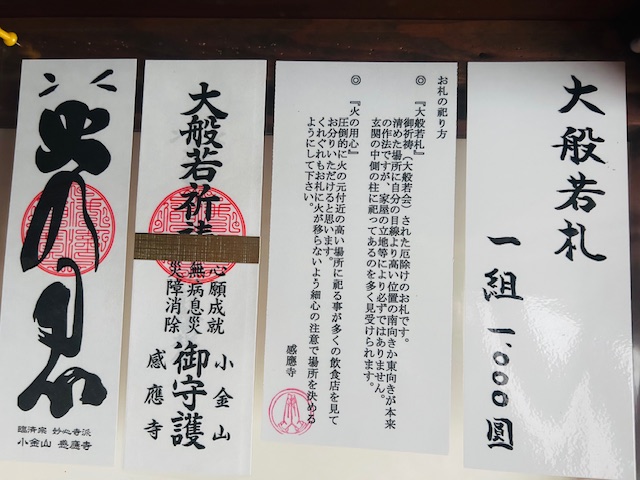 大般若札
一組 一、〇〇〇圓
お札の祀り方
◎『大般若札』
御祈祷(大般若会)された厄除けのお札です。
清めた場所に自分の目線より高い位置の南向きか東向きが本来
の作法ですが、家屋の立地等により必ずではありません。
玄関の中側の柱に祀ってあるのを多く見受けられます。
◎『火の用心』
圧倒的に火の元付近の高い場所に祀る事が多くの飲食店を見て
お分りいただけると思います。
くれぐれもお札に火が移らないよう細心の注意で場所を決める
ようにして下さい。
感應寺
大般若祈祷
心願成就
無病息災
災障消除
御守護
小金山
感應寺
火の用心
臨済宗 妙心寺派
小金山 感應寺